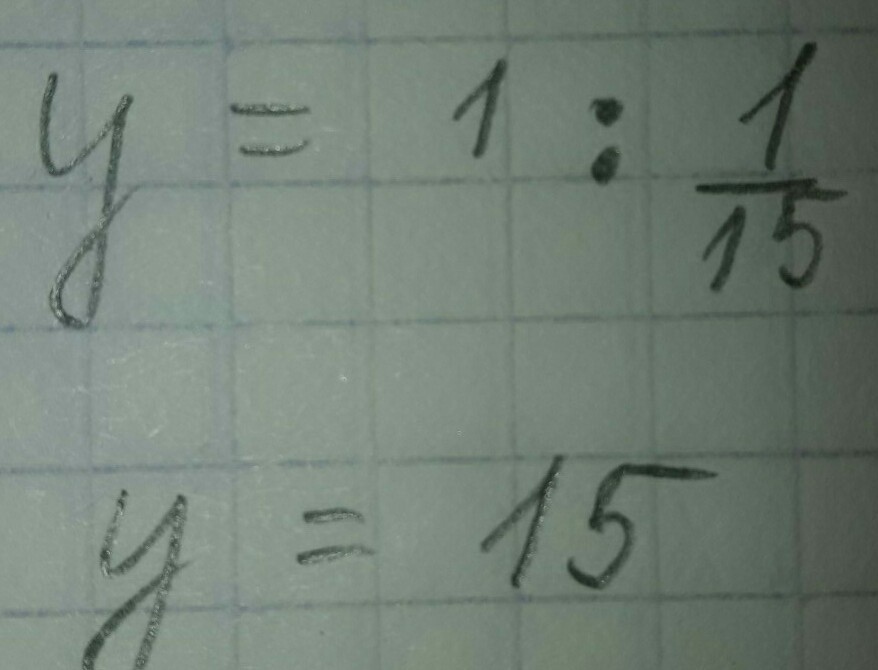 y = 1 : 1/15
y = 15